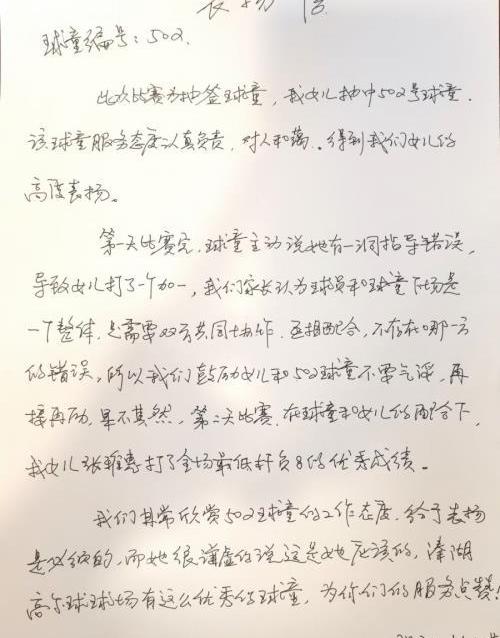 表扬信
球童编号：502.
此次比赛为抽签球童，我女儿抽中502号球童.
该球童服务态度认真负责，对人和蔼．得到我们女儿的
高度表扬。
第一天比赛完，球童主动说她有一洞指导错误，
导致女儿打了一个加一，我们家长认为球员和球童下场是
一个整体，是需要双方共同协作，互相配合，不存在哪一方
的错误，所以我们鼓励女儿和502球童不要气馁，再
接再励，果不其然，第二天比赛，在球童和女儿的配合下，
我女儿张雅惠打了全场最低杆负8的优秀成绩。
我们非常欣赏502球童的工作态度，给予表扬
是必须的，而她很谦虚的说这是她应该的，溱湖
高尔球球场有这么优秀的球童，为你们的服务点赞！